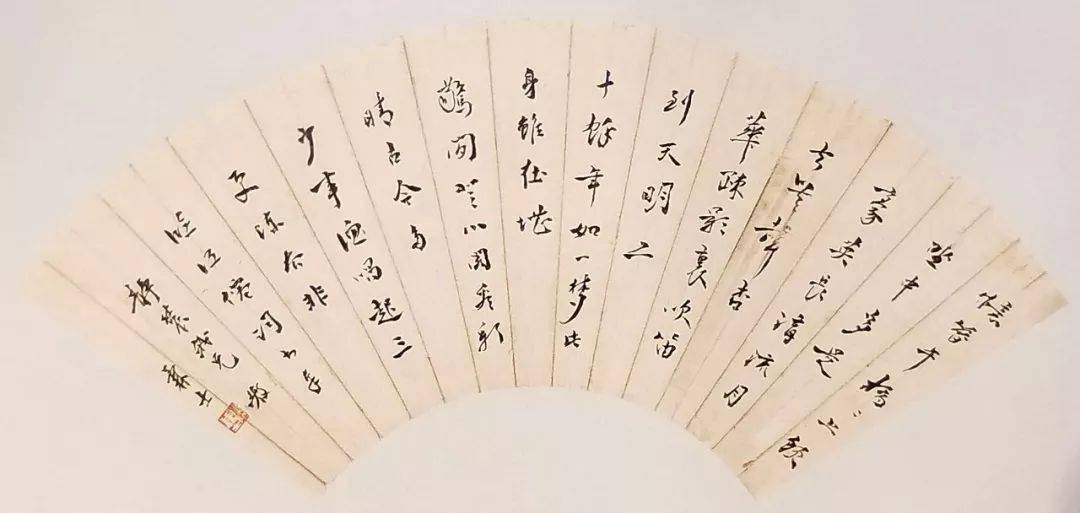 憶昔午橋〻上飲
坐中多是
豪英長溝流月
去無聲杏
華疎影裏吹笛
到天明二
十餘年如一夢此
身雖在堪
驚閒登小閣看新
晴古今多
少事漁唱起三
更陳去非
臨江僊詞書奉
兄
士